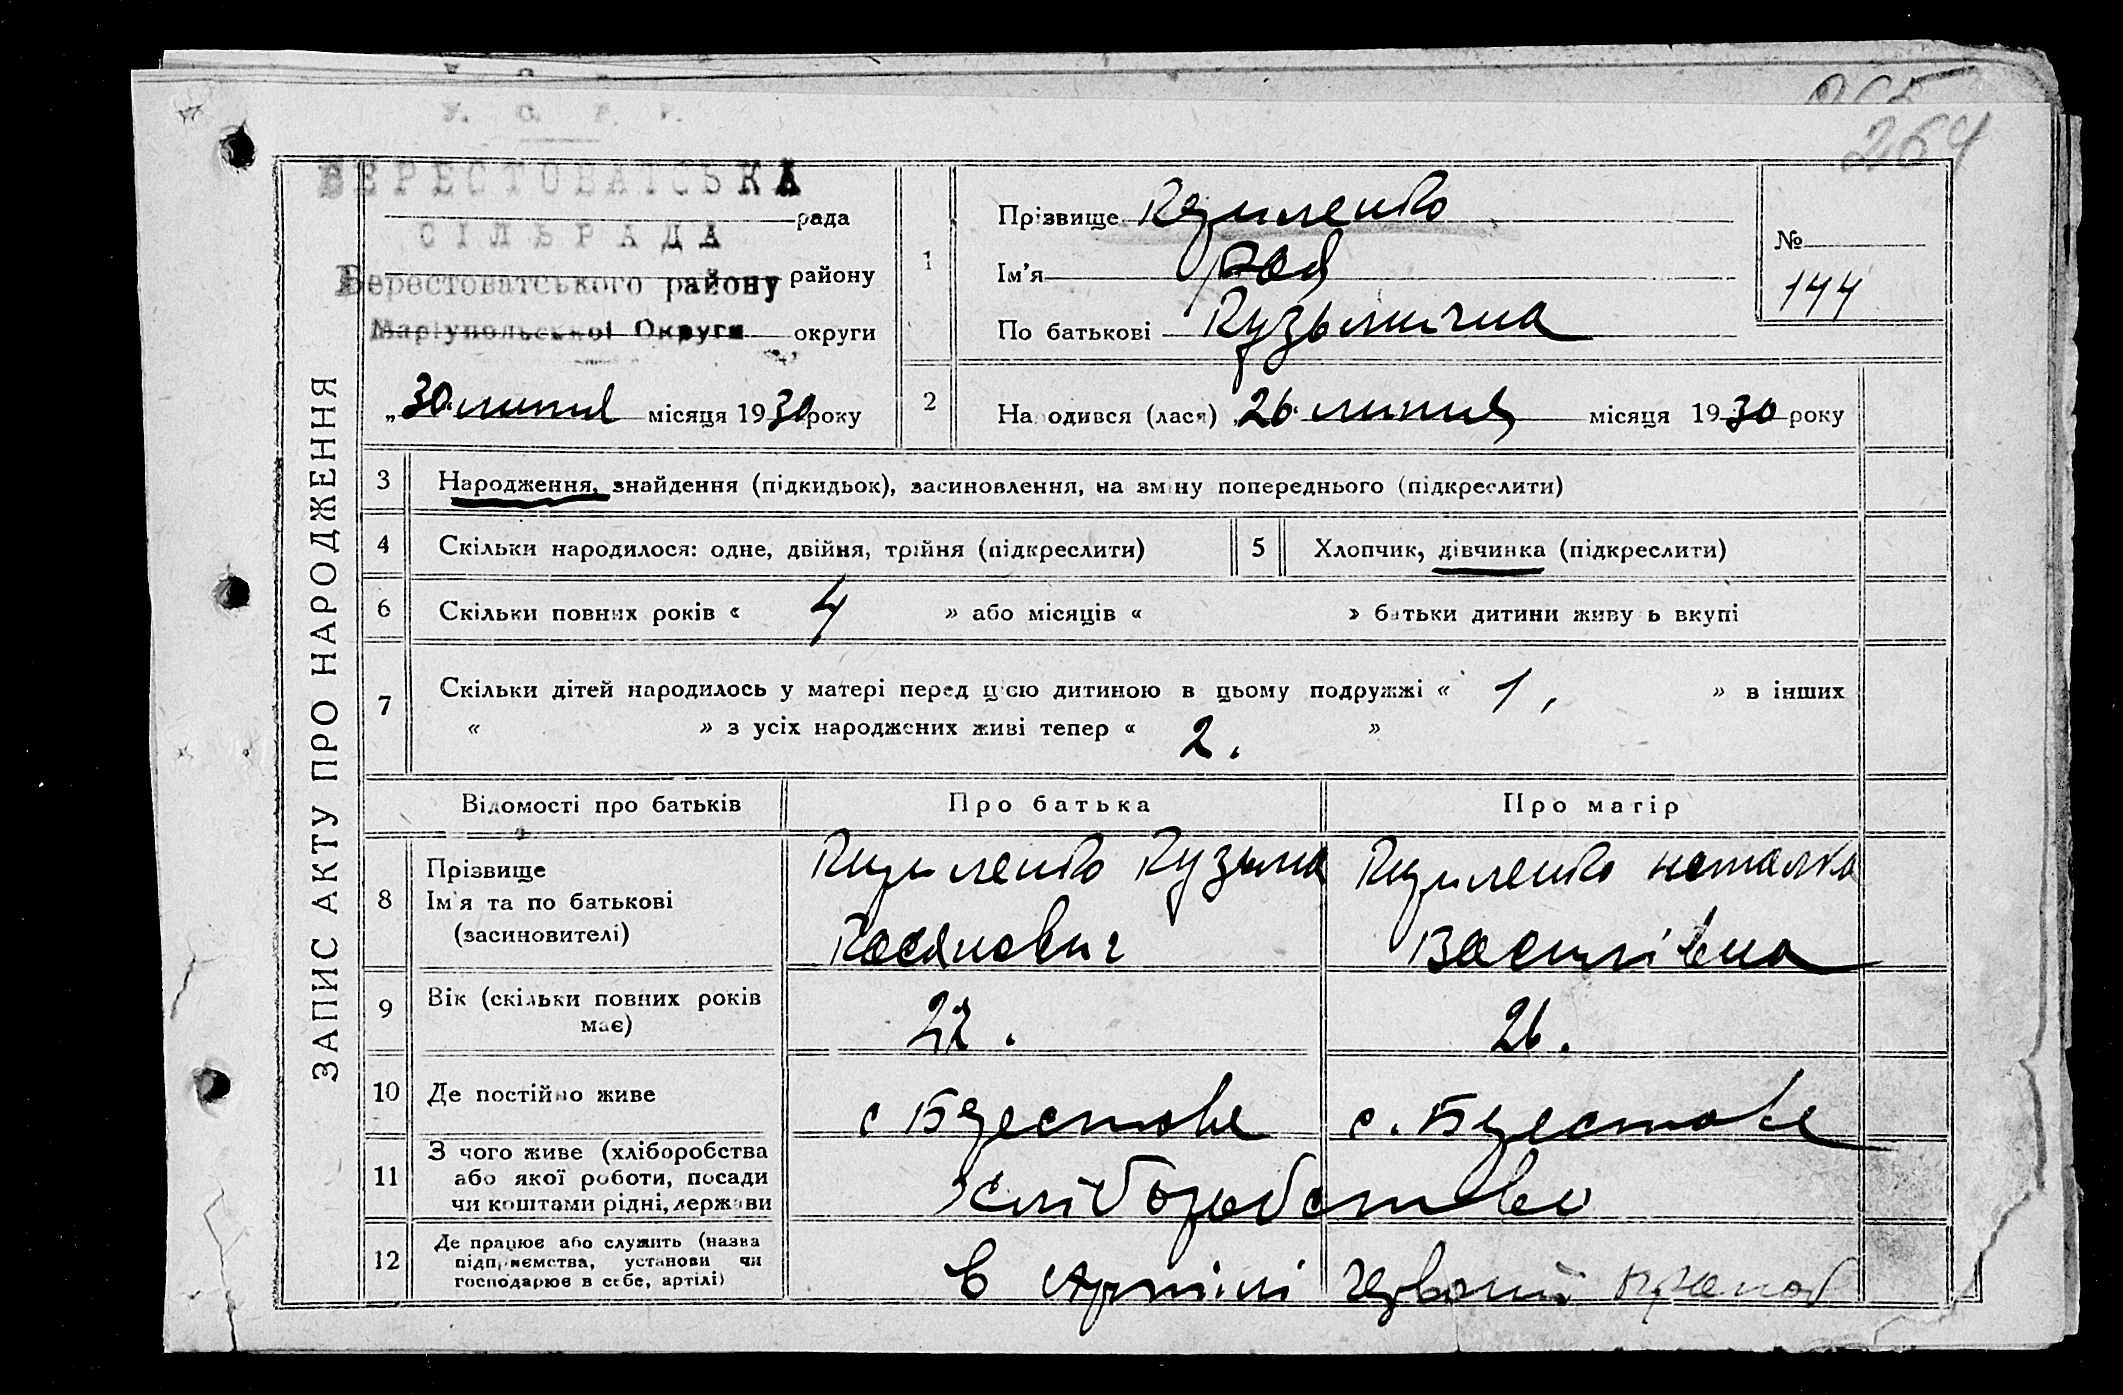 264
У. С. Р. Р.
БЕРЕСТОВАТСЬКА
рада
СІЛЬРАДА
Берестоватського району району
Маріупольської Округи округи
„30 липня місяця 1930 року
1
Прізвище Кириленко
Ім'я Рая
По батькові Кузьмична
№
144
2
Народився (лася) „26 липня місяця 1930 року
ЗАПИС АКТУ ПРО НАРОДЖЕННЯ
3 Народження, знайдення (підкидьок), засиновлення, на зміну попереднього (підкреслити)
4 Скільки народилося: одне, двійня, трійня (підкреслити) 5 Хлопчик, дівчинка (підкреслити)
6 Скільки повних років « 4 » або місяців « » батьки дитини живуть вкупі
7 Скільки дітей народилось у матері перед цією дитиною в цьому подружжі « 1, » в інших
« » з усіх народжених живі тепер « 2. »
Відомості про батьків Про батька Про матір
8 Прізвище
Ім'я та по батькові
(засиновителі)
Кириленко Кузьма
Касянович
Кириленко Наталка
Василівна
9 Вік (скільки повних років
має)
22. 26.
10 Де постійно живе с Берестове с. Берестове
11 З чого живе (хліборобства
або якої роботи, посади
чи коштами рідні, держави
хліборобство
12 Де працює або служить (назва
підприємства, установи чи
господарює в себе, артілі)
в Артілі Червоний